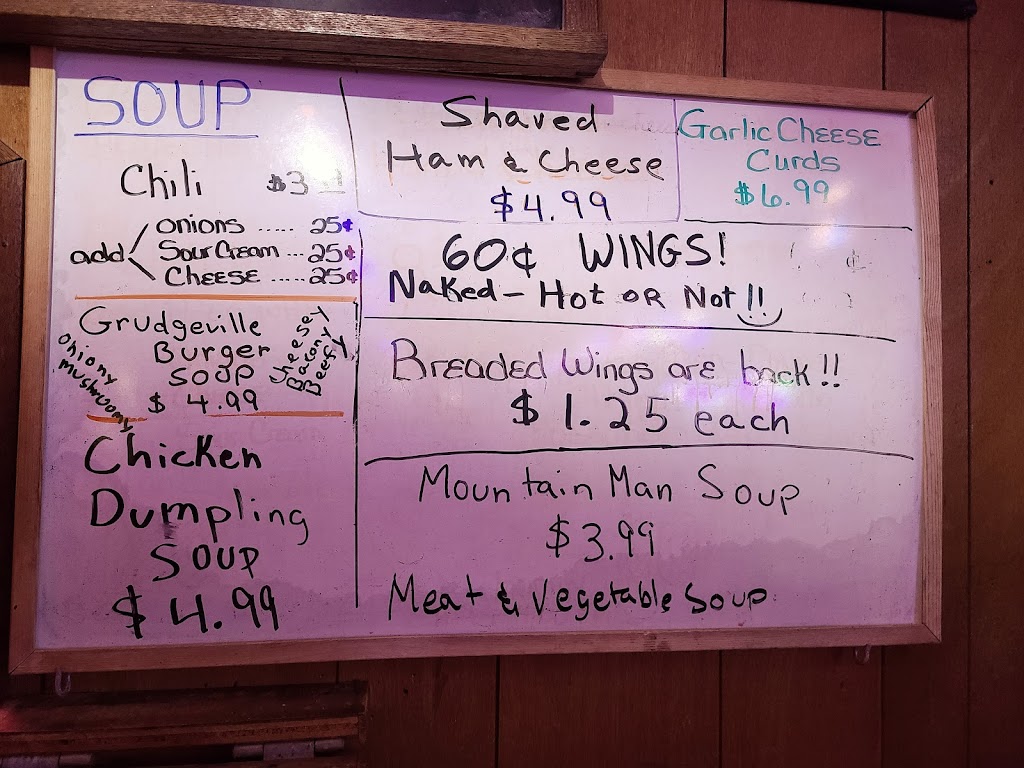 SOUP
Chili $3
add
onions ..... 25¢
Sour Cream ... 25¢
Cheese ...... 25¢
Grudgeville
Burger
Soup
$ 4.99
Oniony
Mushroomy
Cheesey
Bacony
Beefy
Chicken
Dumpling
Soup
$ 4.99
Shaved
Ham & Cheese
$4.99
Garlic Cheese
Curds
$6.99
60¢ WINGS!
Naked - Hot OR Not!!
Breaded Wings are back!!
$1.25 each
Mountain Man Soup
$3.99
Meat & Vegetable Soup